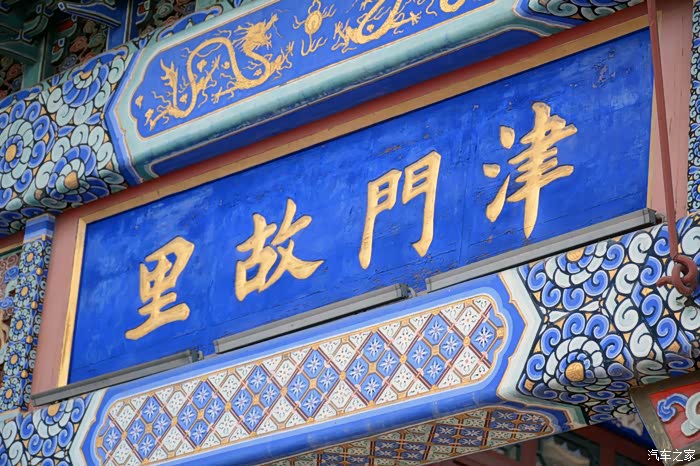 津門故里
汽车之家